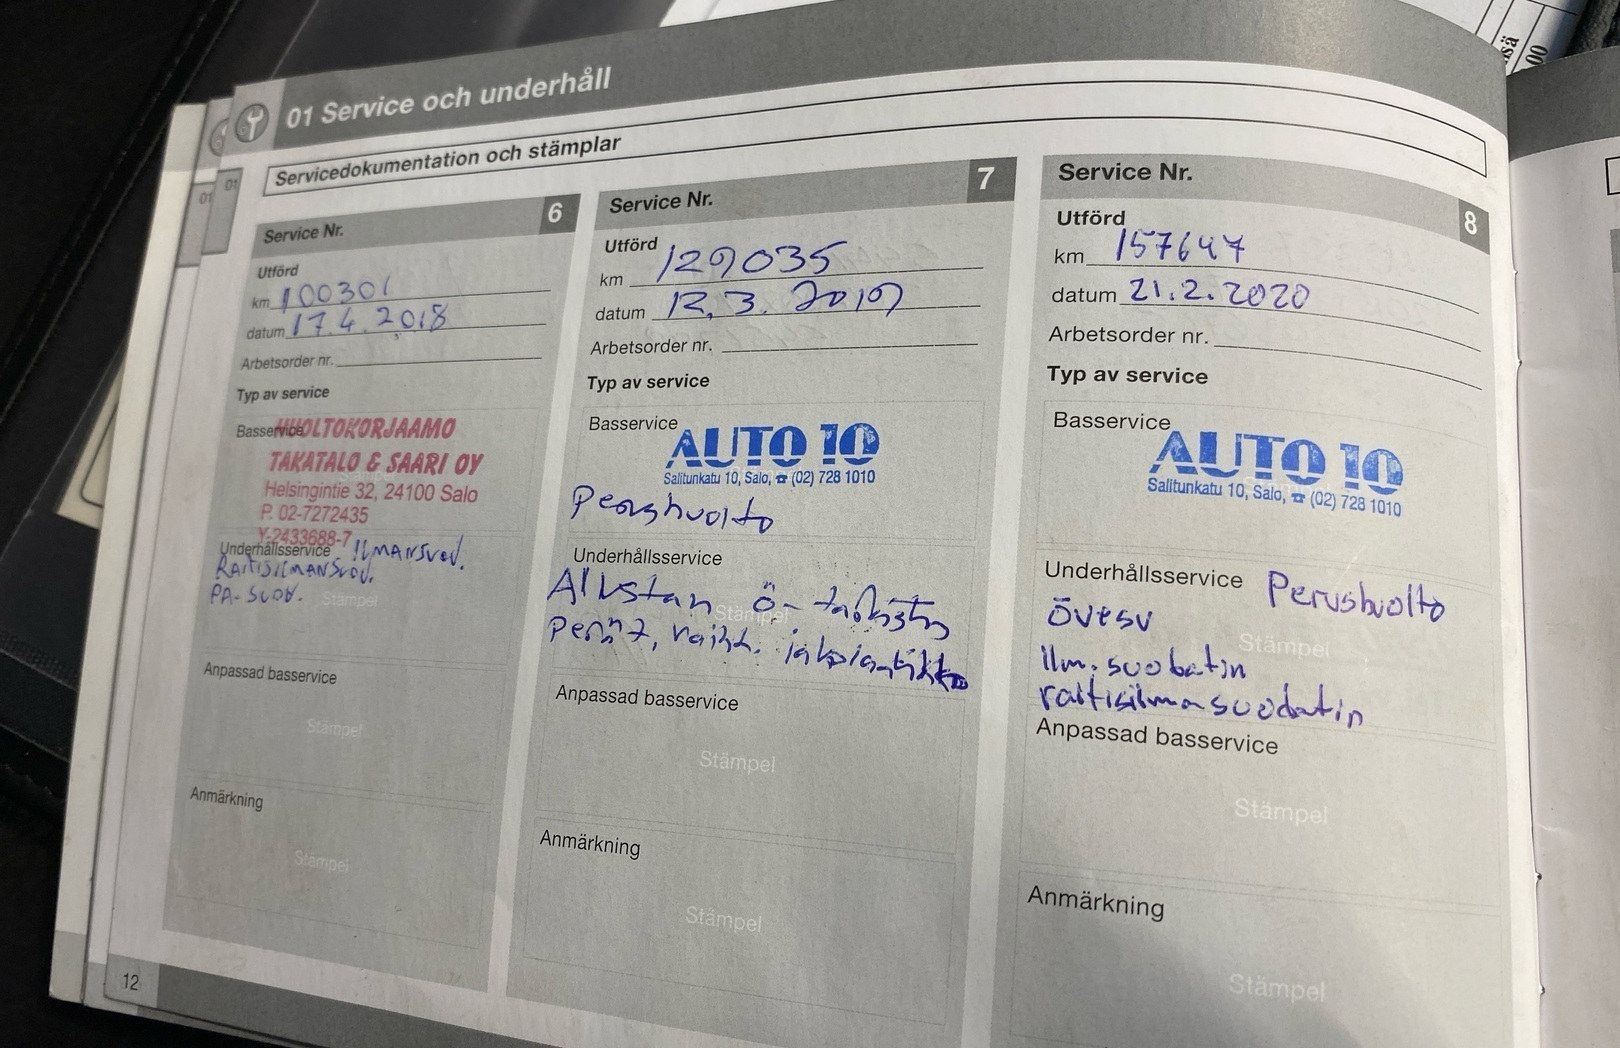 01 Service och underhåll
Servicedokumentation och stämplar
01
01
Service Nr. 6
Utförd
km 100301
datum 17.4.2018
Arbetsorder nr.
Typ av service
Basservice
HUOLTOKORJAAMO
TAKATALO & SAARI OY
Helsingintie 32, 24100 Salo
P. 02-7272435
Y-2433688-7
Underhållsservice ILMANSUOD.
RAITISILMANSUOD.
PA-SUOD.
Stämpel
Anpassad basservice
Stämpel
Anmärkning
Stämpel
Service Nr. 7
Utförd
km 129035
datum 12.3.2019
Arbetsorder nr.
Typ av service
Basservice
AUTO 10
Salitunkatu 10, Salo, ☎ (02) 728 1010
Perushuolto
Underhållsservice
Alustan ö-
Stämpel
vaiht.
Anpassad basservice
Stämpel
Anmärkning
Stämpel
Service Nr. 8
Utförd
km 157647
datum 21.2.2020
Arbetsorder nr.
Typ av service
Basservice
AUTO 10
Salitunkatu 10, Salo, ☎ (02) 728 1010
Underhållsservice Perushuolto
övesu
Stämpel
ilm.suodatin
raitisilmasuodatin
Anpassad basservice
Stämpel
Anmärkning
Stämpel
12
sä
00